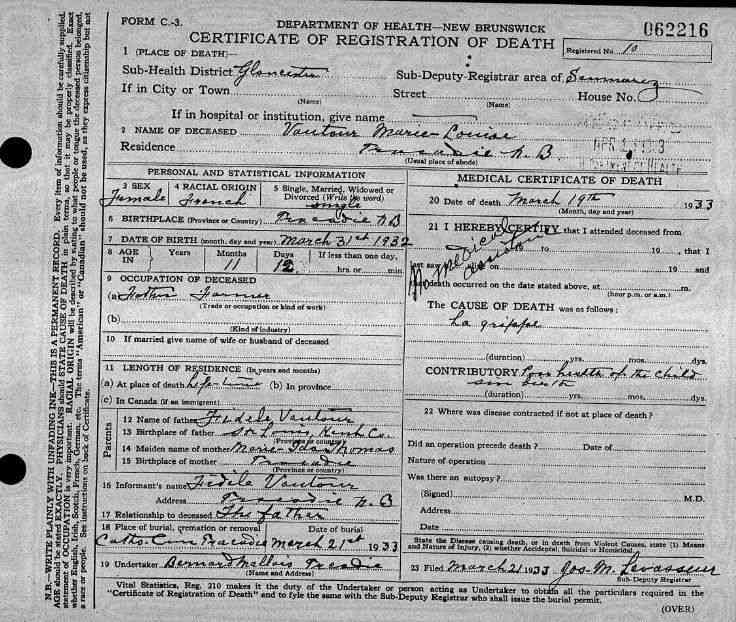 FORM C.-3.
DEPARTMENT OF HEALTH—NEW BRUNSWICK
062216
CERTIFICATE OF REGISTRATION OF DEATH
Registered No. 10
1 (PLACE OF DEATH)—
Sub-Health District Gloucester Sub-Deputy-Registrar area of
If in City or Town Street House No.
(Name) (Name)
If in hospital or institution, give name
2 NAME OF DECEASED Vautour Marie Louise
Residence Tracadie N.B.
(Usual place of abode)
PERSONAL AND STATISTICAL INFORMATION
3 SEX 4 RACIAL ORIGIN 5 Single, Married, Widowed or Divorced (Write the word)
Female French single
6 BIRTHPLACE (Province or Country) Tracadie N B
7 DATE OF BIRTH (month, day and year) March 31st 1932
8 AGE IN Years Months Days If less than one day,
11 12 hrs. or min.
9 OCCUPATION OF DECEASED
(a) Father Farmer
(Trade or occupation or kind of work)
(b)
(Kind of industry)
10 If married give name of wife or husband of deceased
11 LENGTH OF RESIDENCE (In years and months)
(a) At place of death life time (b) In province
(c) In Canada (if an immigrant)
Parents
12 Name of father Fidele Vautour
13 Birthplace of father St Louis, Kent Co.
(Province or country)
14 Maiden name of mother Marie Ida Thomas
15 Birthplace of mother Tracadie
(Province or country)
16 Informant's name Fidele Vautour
Address Tracadie N.B
17 Relationship to deceased The father
18 Place of burial, cremation or removal Date of burial
Catho. Cem Tracadie March 21st 1933
19 Undertaker Bernard Mallais Tracadie
(Name and Address)
MEDICAL CERTIFICATE OF DEATH
20 Date of death March 19th 1933
(Month, day and year)
21 I HEREBY CERTIFY that I attended deceased from
19 to 19 , that I
last saw on 19
death occurred on the date stated above, at m.
(hour p.m. or a.m.)
No medical assistance
The CAUSE OF DEATH was as follows:
La grippe
(duration) yrs. mos. dys.
CONTRIBUTORY Poor health of the child
sin birth
(duration) yrs. mos. dys.
22 Where was disease contracted if not at place of death?
Did an operation precede death? Date of
Nature of operation
Was there an autopsy?
(Signed) M.D.
Address
Date
State the Disease causing death, or in death from Violent Causes, state (1) Means and Nature of Injury, (2) whether Accidental, Suicidal or Homicidal.
23 Filed March 21 1933 Jos. M. Levasseur
Sub-Deputy Registrar
Vital Statistics, Reg. 210 makes it the duty of the Undertaker or person acting as Undertaker to obtain all the particulars required in the
"Certificate of Registration of Death" and to fyle the same with the Sub-Deputy Registrar who shall issue the burial permit.
(OVER)
N.B.—WRITE PLAINLY WITH UNFADING INK—THIS IS A PERMANENT RECORD. Every item of information should be carefully supplied.
AGE should be stated EXACTLY. PHYSICIANS should STATE CAUSE OF DEATH in plain terms, so that it may be properly classified. Exact
statement of OCCUPATION is very important. RACIAL ORIGIN will be described by stating to what people or tongue the deceased person belonged,
whether English, Irish, Scotch, French, German, etc. The terms "American" or "Canadian" should not be used, as they express citizenship but not
a race or people. See instructions on back of Certificate.